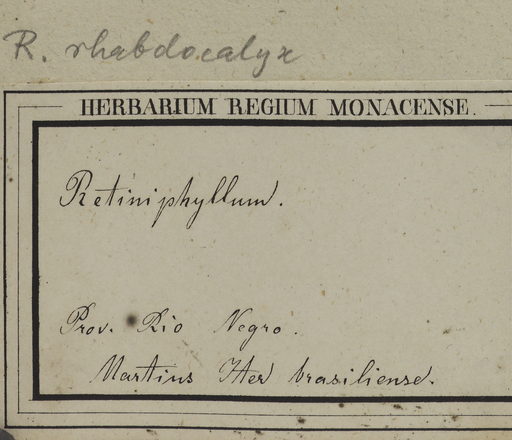 R. rhabdocalyx
HERBARIUM REGIUM MONACENSE.
Retiniphyllum.
Prov. Rio Negro.
Martius Iter brasiliense.